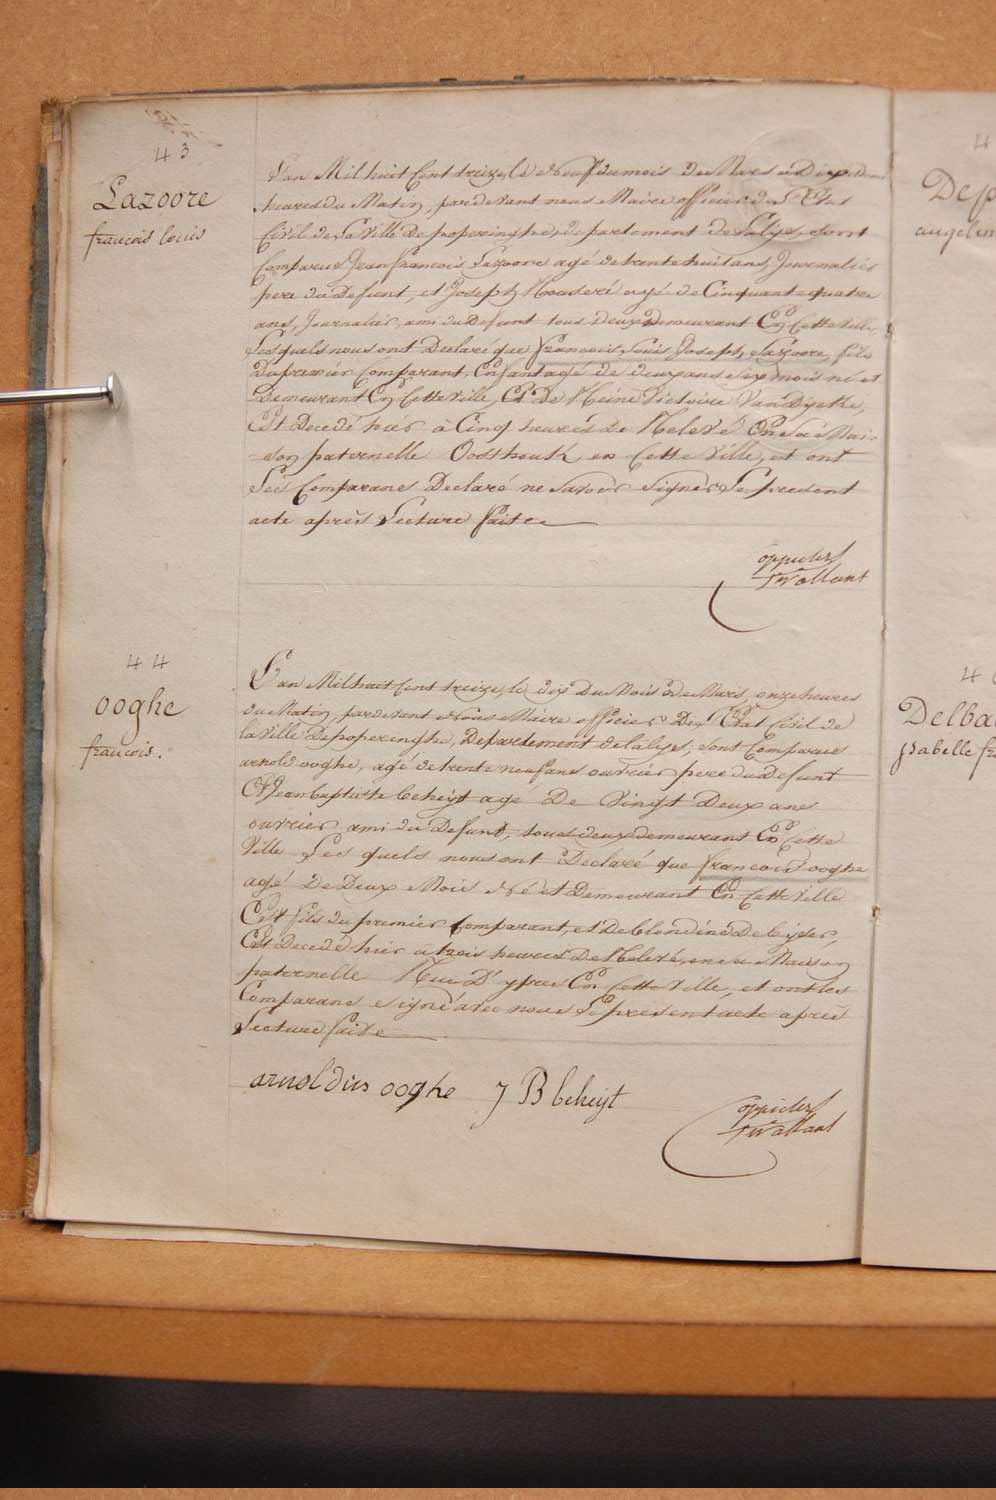 43
Lazoore
francois louis
L'an Mil huit Cent treize, le Neuf du mois de Mars a Dix
heures du Matin, par devant nous Maire officier de L'Etat
Civil de La Ville De poperinghe, departement de La lys, sont
Comparus Jean francois Lazoore agé de trente huit ans, Journalier
pere du Defunt, et Joseph agé de Cinquante quatre
ans, Journalier, ami du Defunt tous Deux Demeurant En Cette Ville,
Les quels nous ont Declaré que francois Louis Joseph Lazoore, fils
Du premier Comparant, Enfant agé de deux ans six mois né et
Demeurant En Cette Ville, Et De Reine Victoire Van Dycke,
Est Decedé hier a Cinq heures De Relevé En Sa Mai-
son paternelle Oosthouck en Cette Ville, et ont
Les Comparans Declaré ne Savoir signer Le present
acte après Lecture faite
oppulers
Trvallant
44
ooghe
francois.
L'an Mil huit Cent treize, le dix Du Mois de Mars, onze heures
du Matin, par devant Nous Maire officier De L'Etat Civil de
la Ville De poperinghe, Departement de la lys, sont Comparus
arnold ooghe, agé de trente neuf ans ouvrier pere du Defunt
Et Jean baptiste beheyt agé De Vingt Deux ans
ouvrier ami du Defunt, tous deux demeurant En Cette
Ville Les quels nous ont Declaré que francois ooghe
agé De Deux Mois Né et Demeurant En Cette Ville
Est fils du premier Comparant, et De blondine De Cyser,
Est Decedé hier a trois heures De Relevé, en sa Maison
paternelle Rue D'ypres En Cette Ville, et ont les
Comparans signé avec nous Le présent acte après
Lecture faite
arnoldus ooghe J B beheyt
oppulers
Trvallant
4
Dep
angelin
4
Delba
isabelle fr